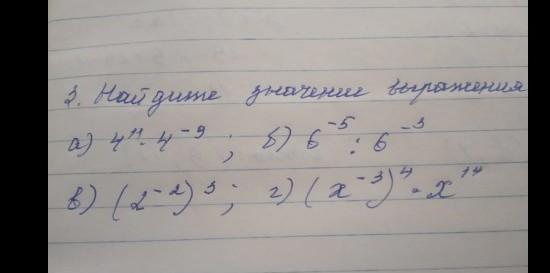 3. Найдите значение выражения
а) 4¹¹ · 4⁻⁹ ; б) 6⁻⁵ : 6⁻³
в) (2⁻²)³ ; г) (x⁻³)⁴ · x¹⁴